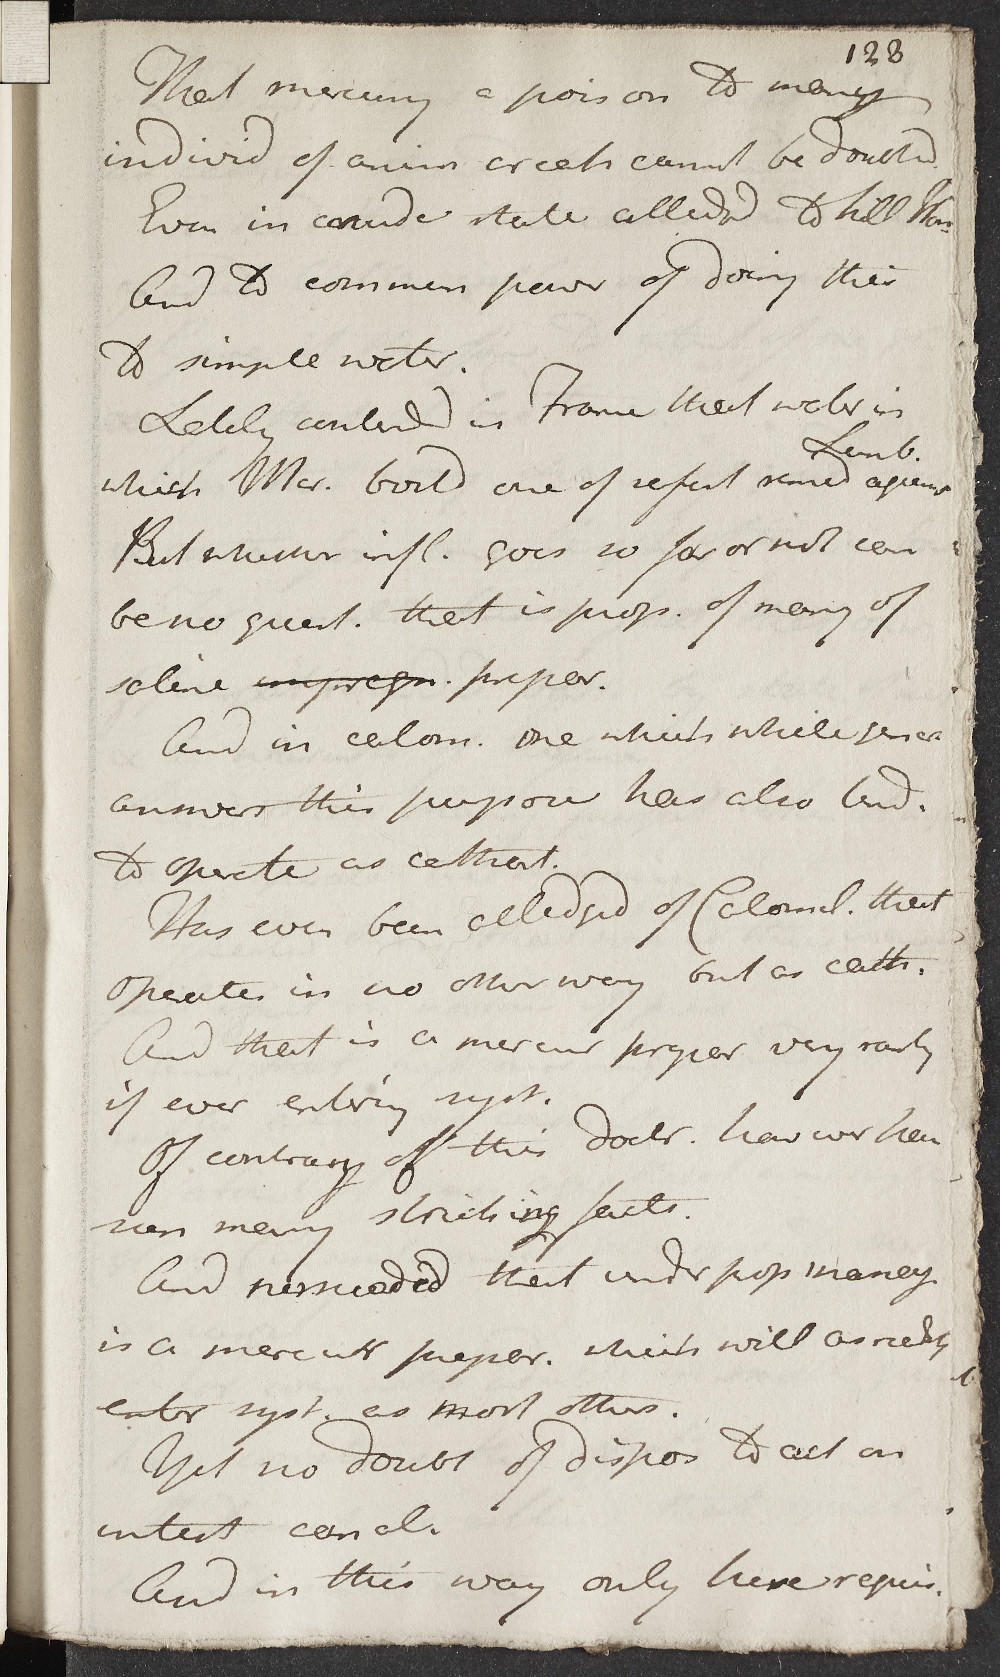 128
That mercury a poison to many
individ of anim creats cannot be doubted
Even in crude state alledgd to kill them
And to commun power of doing this
to simple water.
Lately contend in France that water in
Lumb.
which Mer. boild one of safest remed against
But whether infl. goes so far or not can
be no quest. that is prop. of many of
saline impregn. prepar.
And in calom. one which while gener
answers this purpose has also tend.
to operate as cathart.
Has even been alledged of Calomel. that
operates in no other way but as cath.
And that is a mercur prepar very rarly
if ever entering syst.
Of contrary of this doctr. however have
seen many striking facts.
And persuaded that under prop manag
is a mercur prepar. which will as readily
enter syst. as most others.
Yet no doubt of dispos to act on
intest canal.
And in this way only here requir.